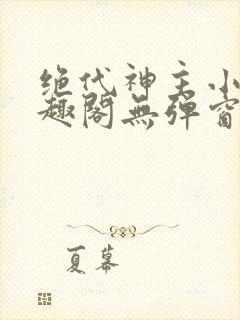 绝代神主小
趣阁無弹窗
夏幕